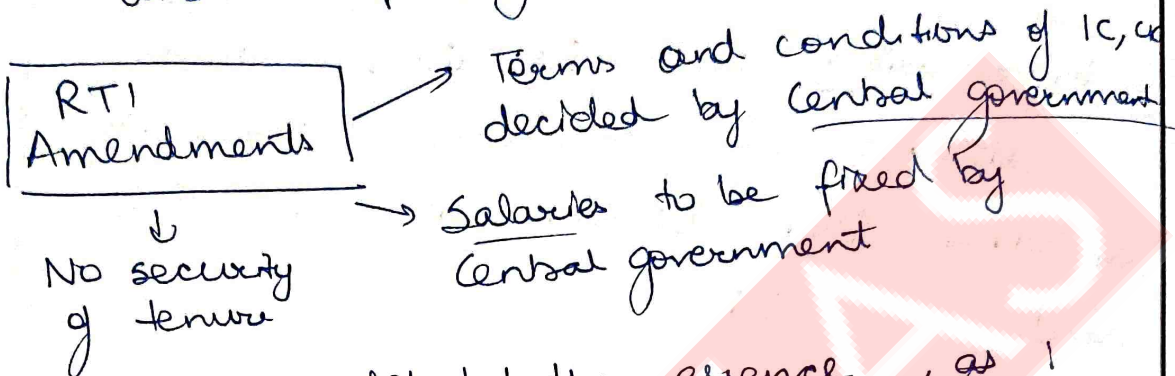 RTI
Amendments
Terms and conditions of IC,
decided by Central government
Salaries to be fixed by
Central government
No security
of tenure
essence, as